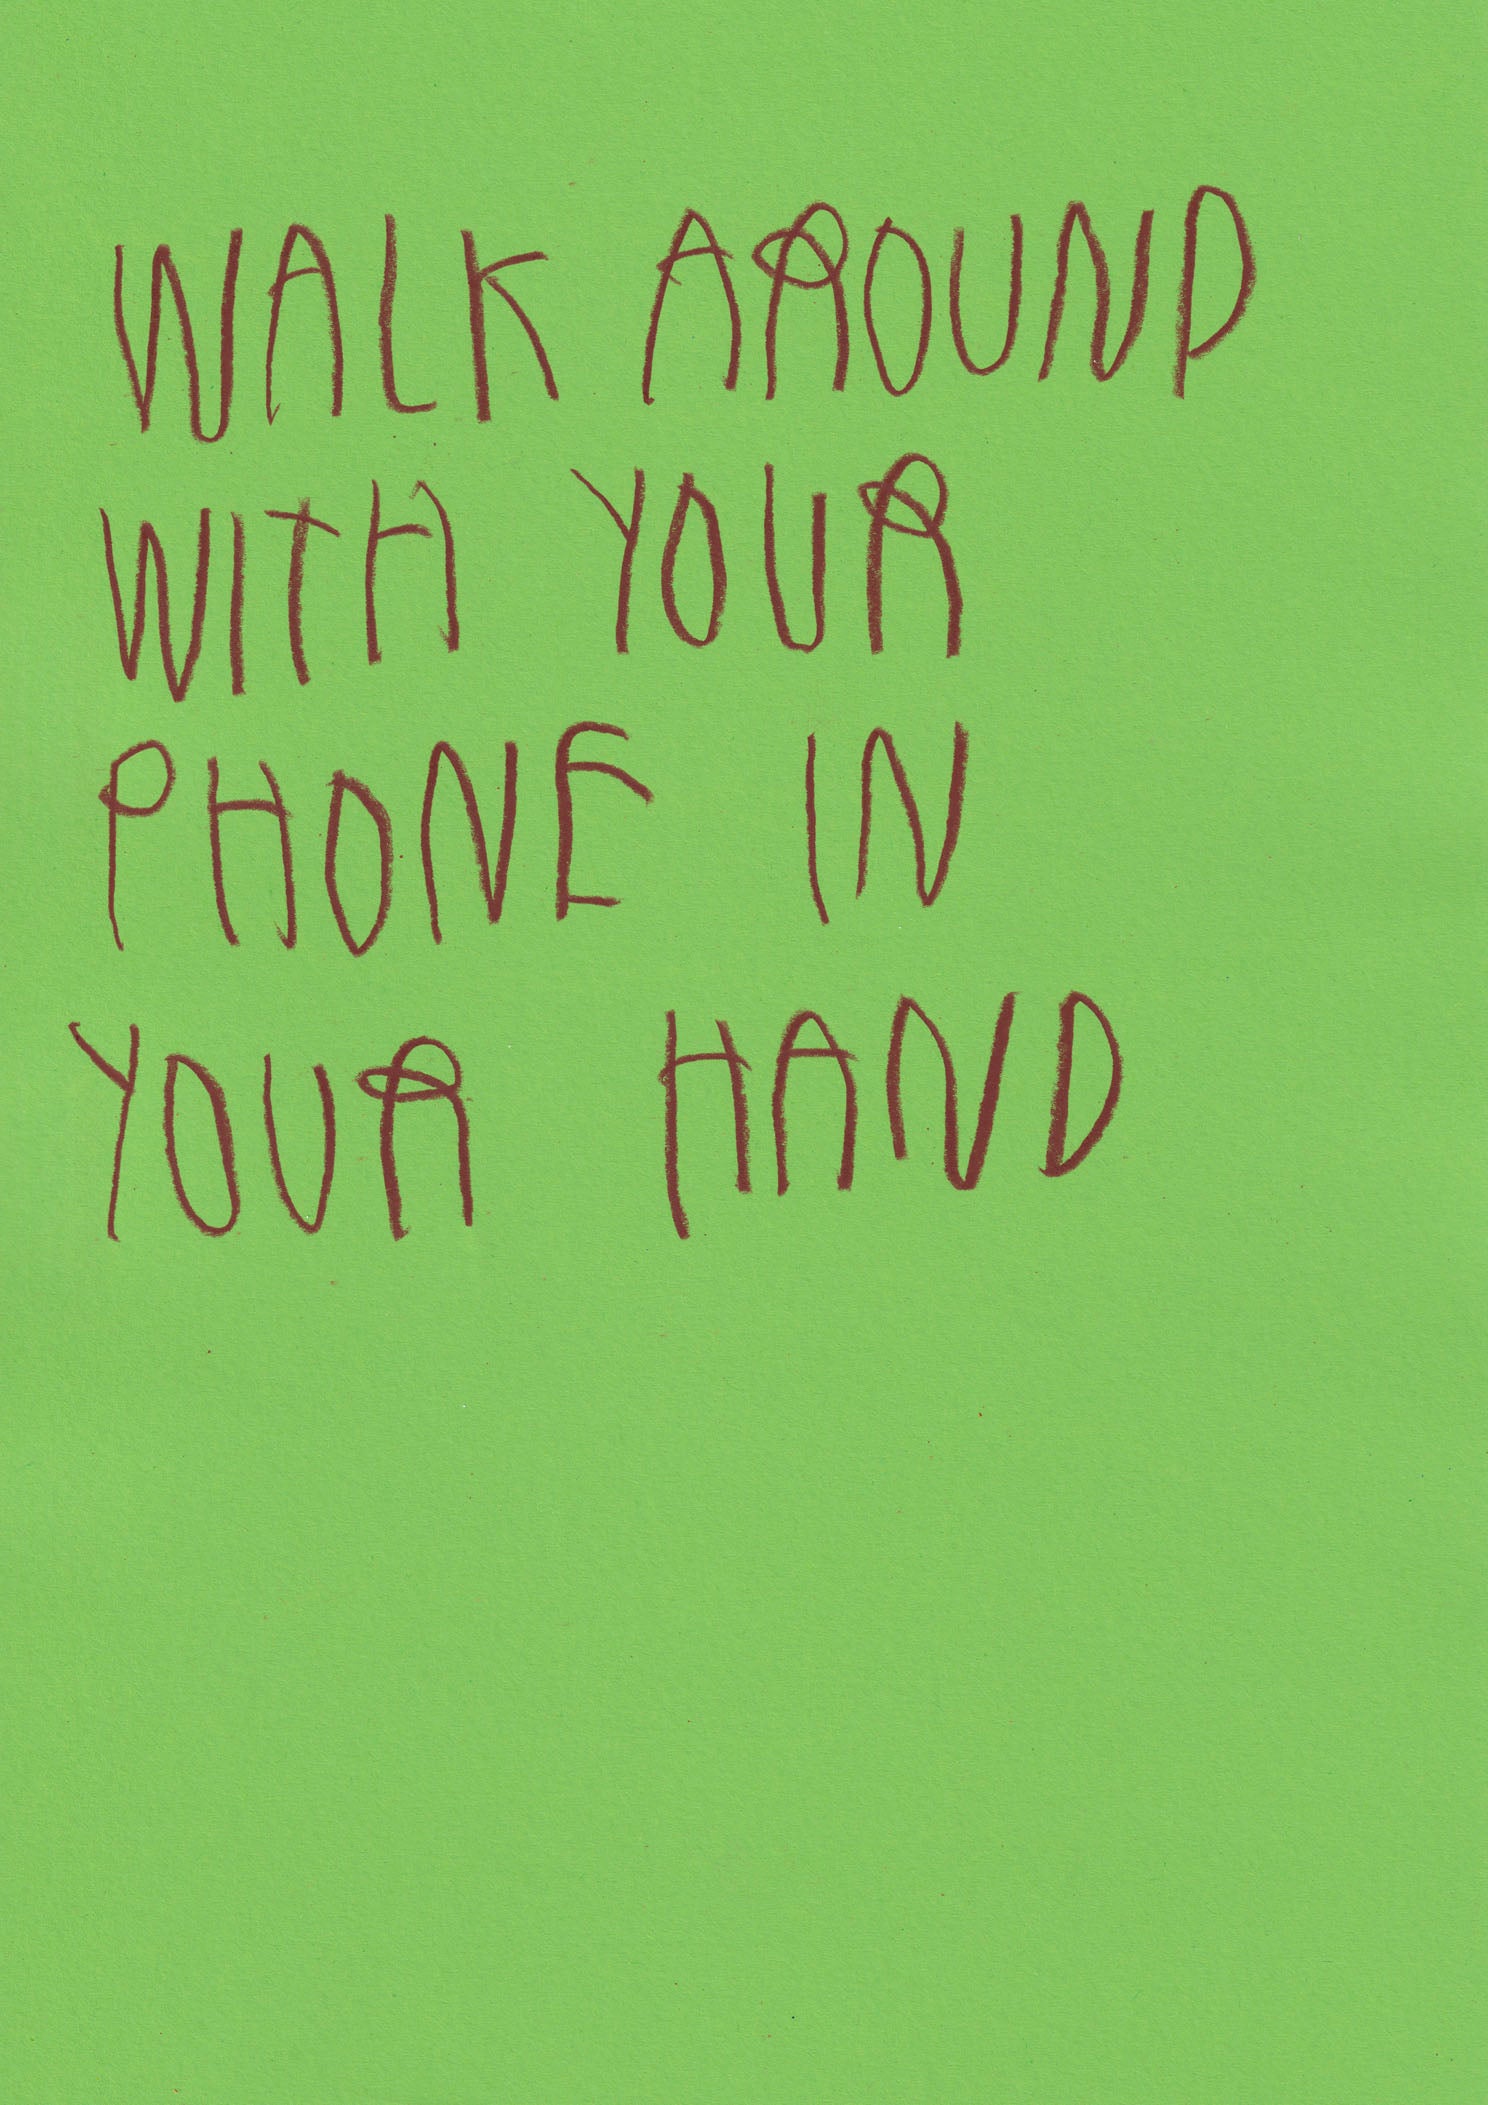 WALK AROUND
WITH YOUR
PHONE IN
YOUR HAND